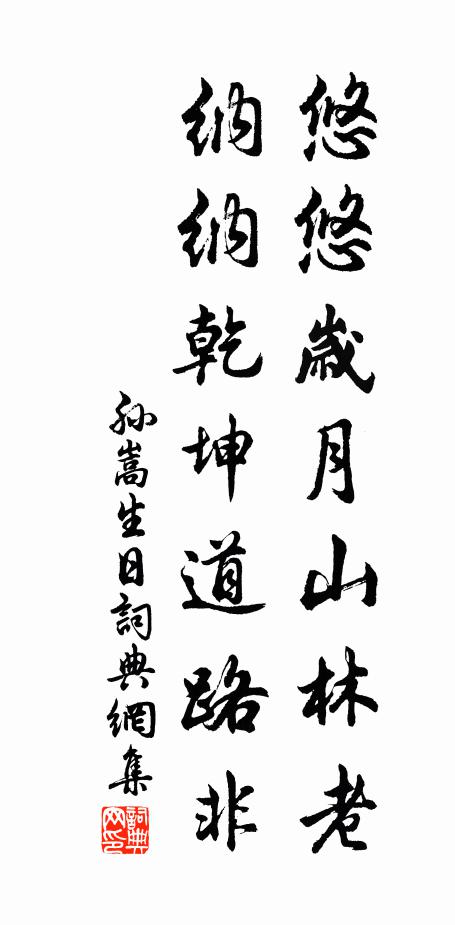 悠悠歲月山林老
納納乾坤道路非
孫嵩生日詞典網集
詞典网印